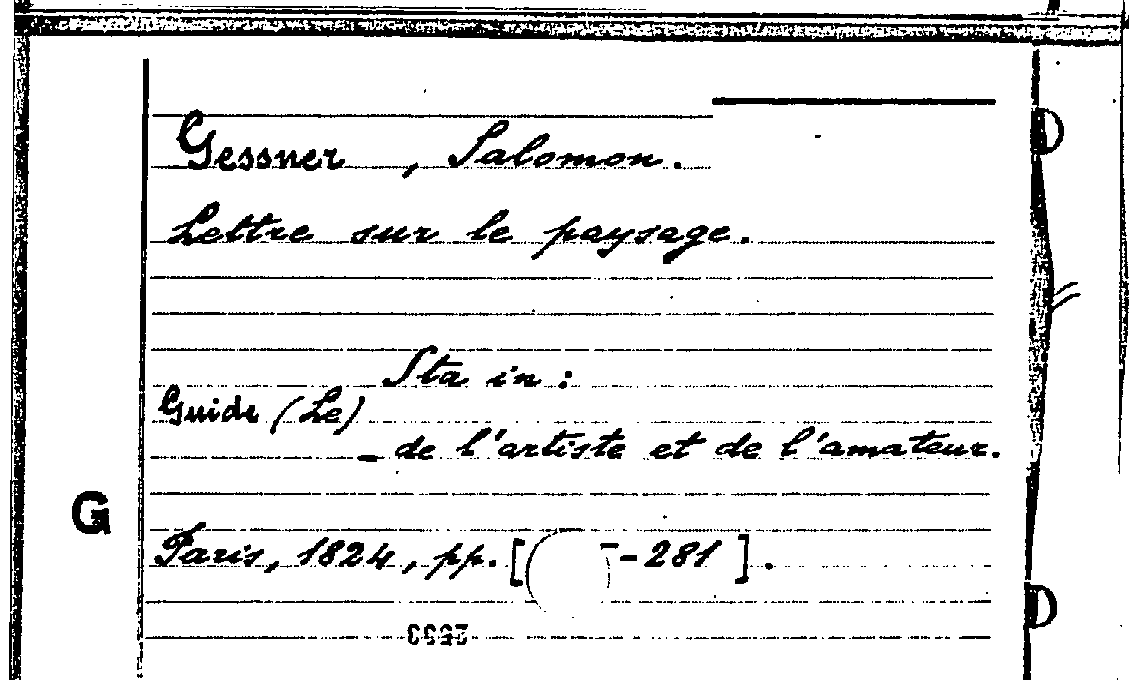 Gessner, Salomon.
Lettre sur le paysage.
Sta in:
Guide (Le)
- de l'artiste et de l'amateur.
G
Paris, 1824, pp. [ -281].